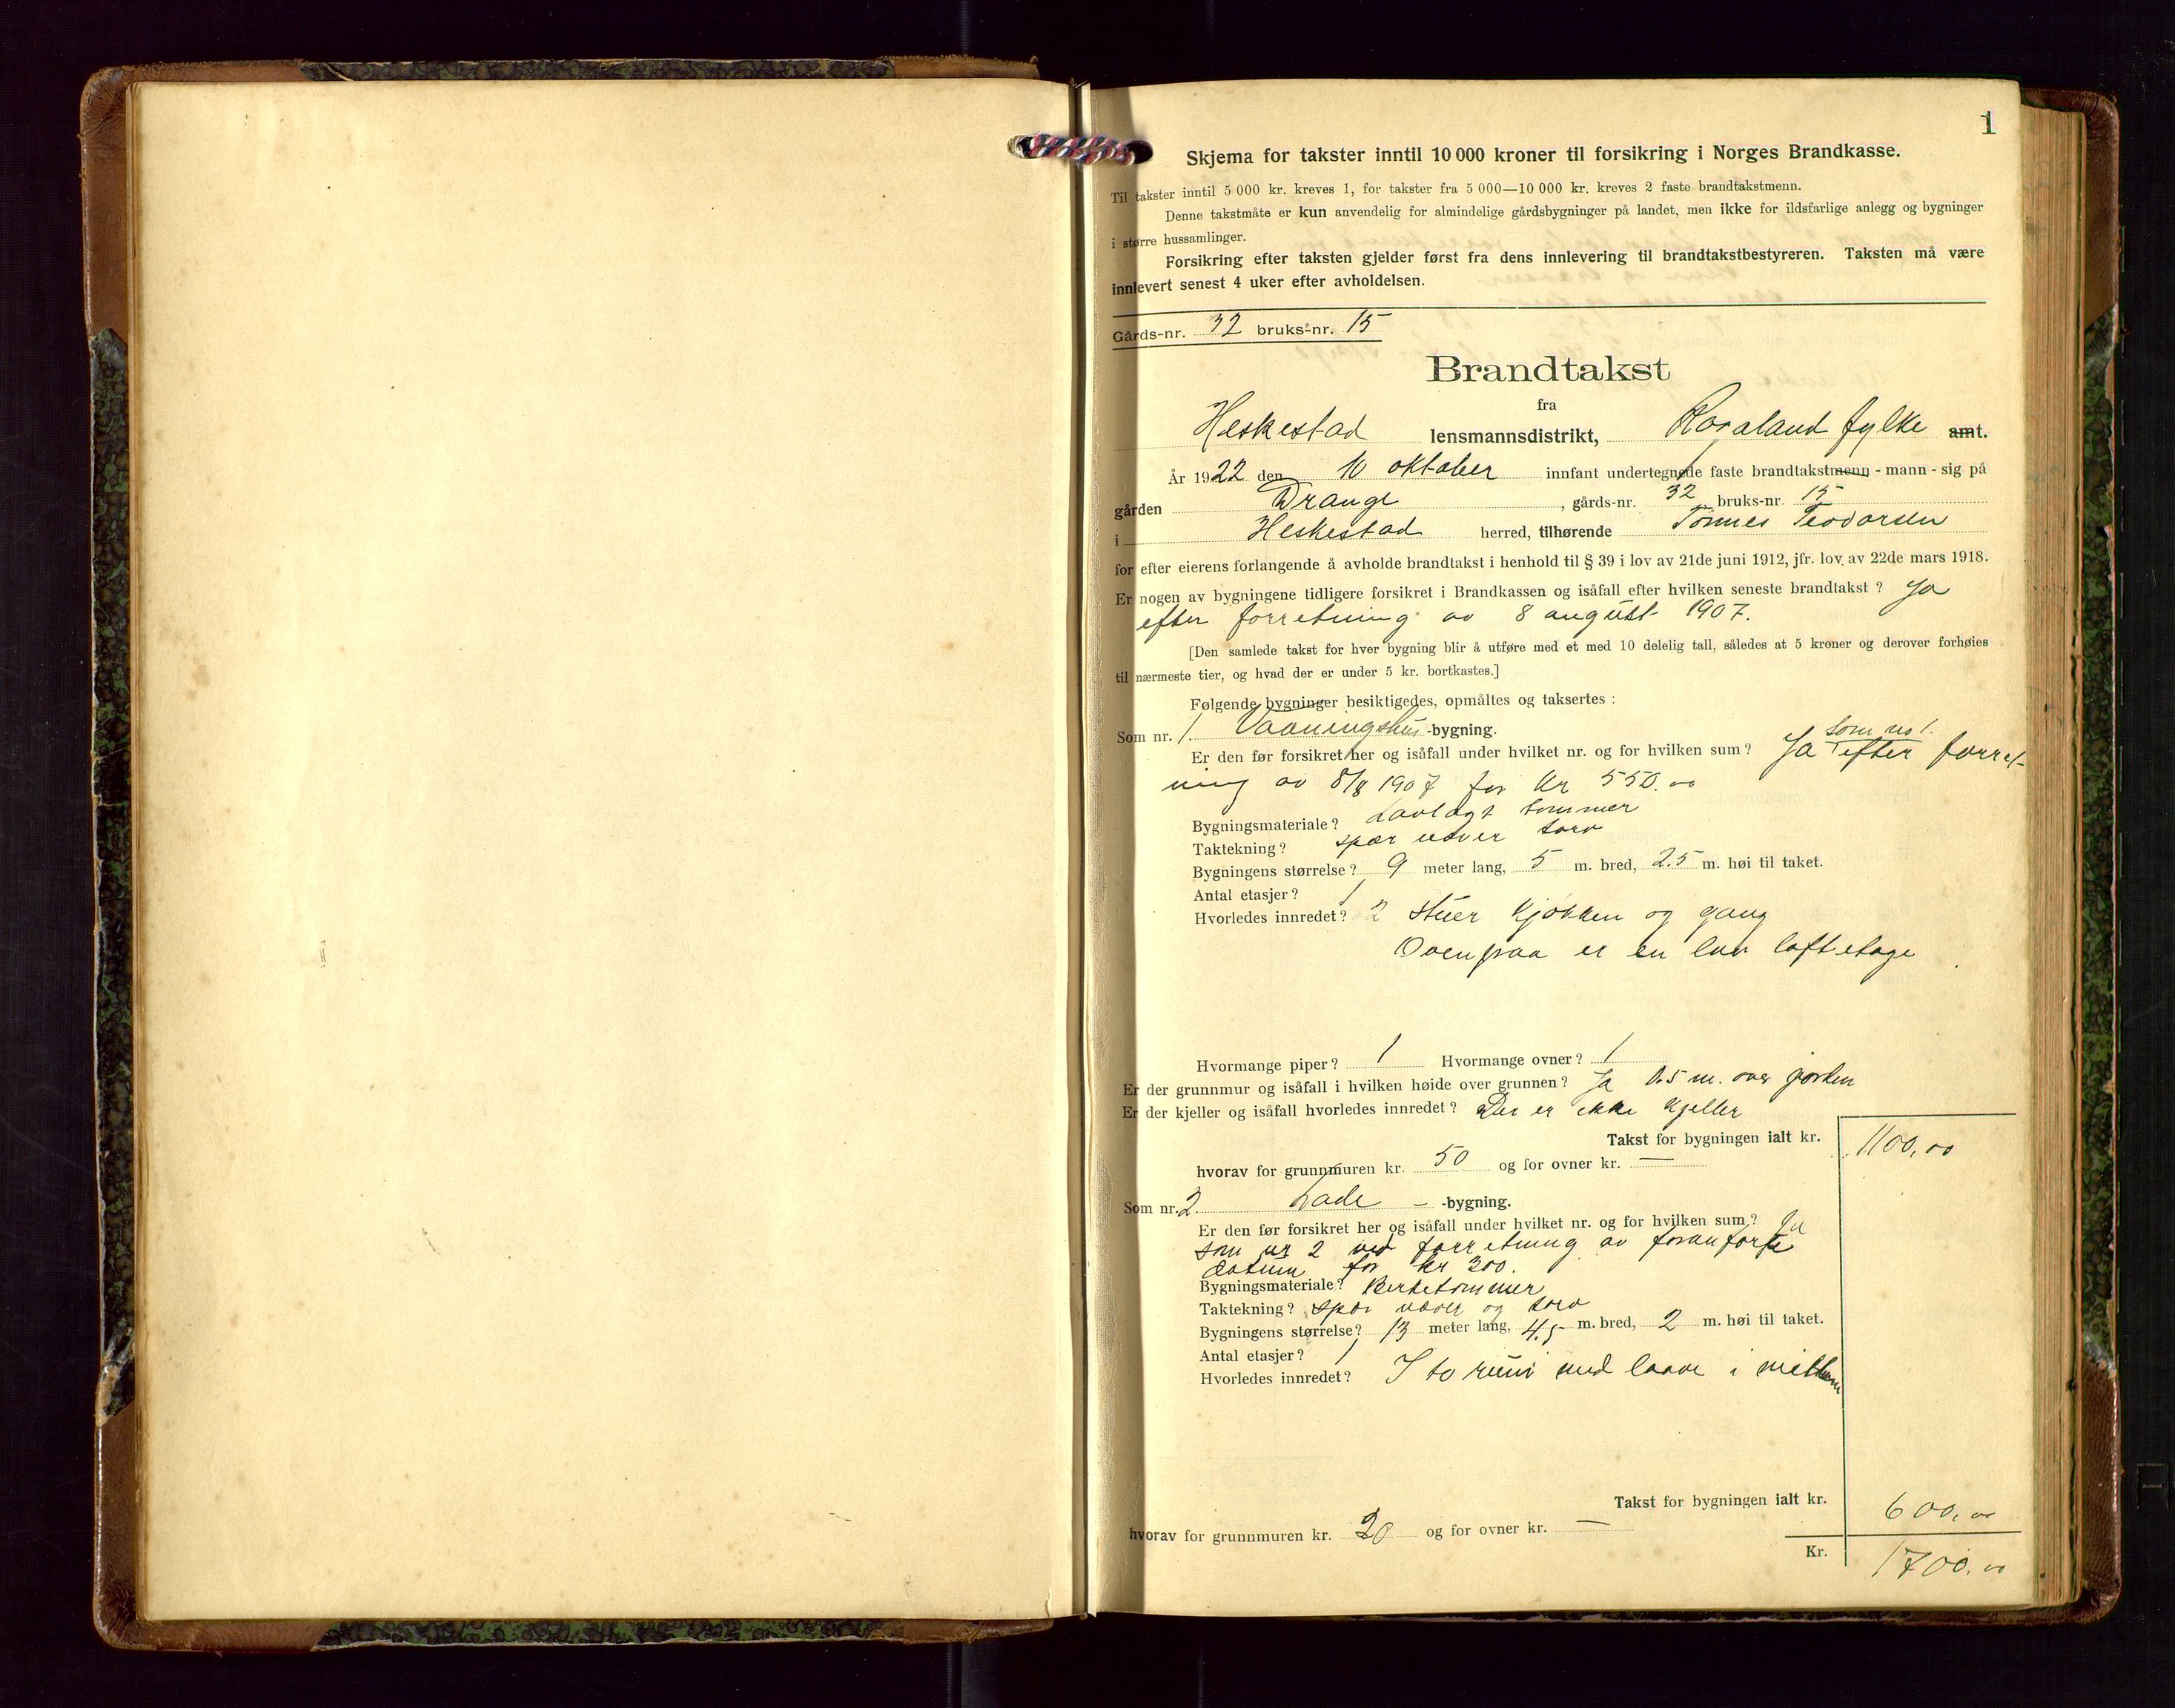 1
Skjema for takster inntil 10 000 kroner til forsikring i Norges Brandkasse.
Til takster inntil 5 000 kr. kreves 1, for takster fra 5 000—10 000 kr. kreves 2 faste brandtakstmenn.
Denne takstmåte er kun anvendelig for almindelige gårdsbygninger på landet, men ikke for ildsfarlige anlegg og bygninger
i større hussamlinger.
Forsikring efter taksten gjelder først fra dens innlevering til brandtakstbestyreren. Taksten må være
innlevert senest 4 uker efter avholdelsen.
Gårds-nr. 32 bruks-nr. 15
Brandtakst
fra
Heskestad lensmannsdistrikt, Rogaland fylke amt.
År 1922 den 10 oktober innfant undertegnede faste brandtakstmenn - mann - sig på
gården Drange, gårds-nr. 32 bruks-nr. 15
i Heskestad herred, tilhørende Tønnes Teodorsen
for efter eierens forlangende å avholde brandtakst i henhold til § 39 i lov av 21de juni 1912, jfr. lov av 22de mars 1918.
Er nogen av bygningene tidligere forsikret i Brandkassen og isåfall efter hvilken seneste brandtakst? Ja
efter forretning av 8 august 1907.
[Den samlede takst for hver bygning blir å utføre med et med 10 delelig tall, således at 5 kroner og derover forhøies
til nærmeste tier, og hvad der er under 5 kr. bortkastes.]
Følgende bygninger besiktigedes, opmåltes og taksertes :
Som nr. 1. Vaaningshus -bygning.
Er den før forsikret her og isåfall under hvilket nr. og for hvilken sum? Ja som no 1. efter forret-
ning av 8/8 1907 for kr 550.00
Bygningsmateriale? Lavlagt tømmer
Taktekning? spær næver torv
Bygningens størrelse? 9 meter lang, 5 m. bred, 2.5 m. høi til taket.
Antal etasjer? 1
Hvorledes innredet? 2 stuer kjøkken og gang
Ovenpaa er en lav loftetage
Hvormange piper? 1 Hvormange ovner? 1
Er der grunnmur og isåfall i hvilken høide over grunnen? Ja 0.5 m. over jorden
Er der kjeller og isåfall hvorledes innredet? Der er ikke kjeller
Takst for bygningen ialt kr. 1100,00
hvorav for grunnmuren kr. 50 og for ovner kr. —
Som nr. 2. Lade - -bygning.
Er den før forsikret her og isåfall under hvilket nr. og for hvilken sum? Ja
som nr 2 ved forretning av foranførte
datum for kr 300.
Bygningsmateriale? Berketømmer
Taktekning? spær næver og torv
Bygningens størrelse? 13 meter lang, 4.5 m. bred, 2 m. høi til taket.
Antal etasjer? 1
Hvorledes innredet? I to rum med laave i mellem
Takst for bygningen ialt kr. 600,00
hvorav for grunnmuren kr. 20 og for ovner kr. —
Kr. 1700.00